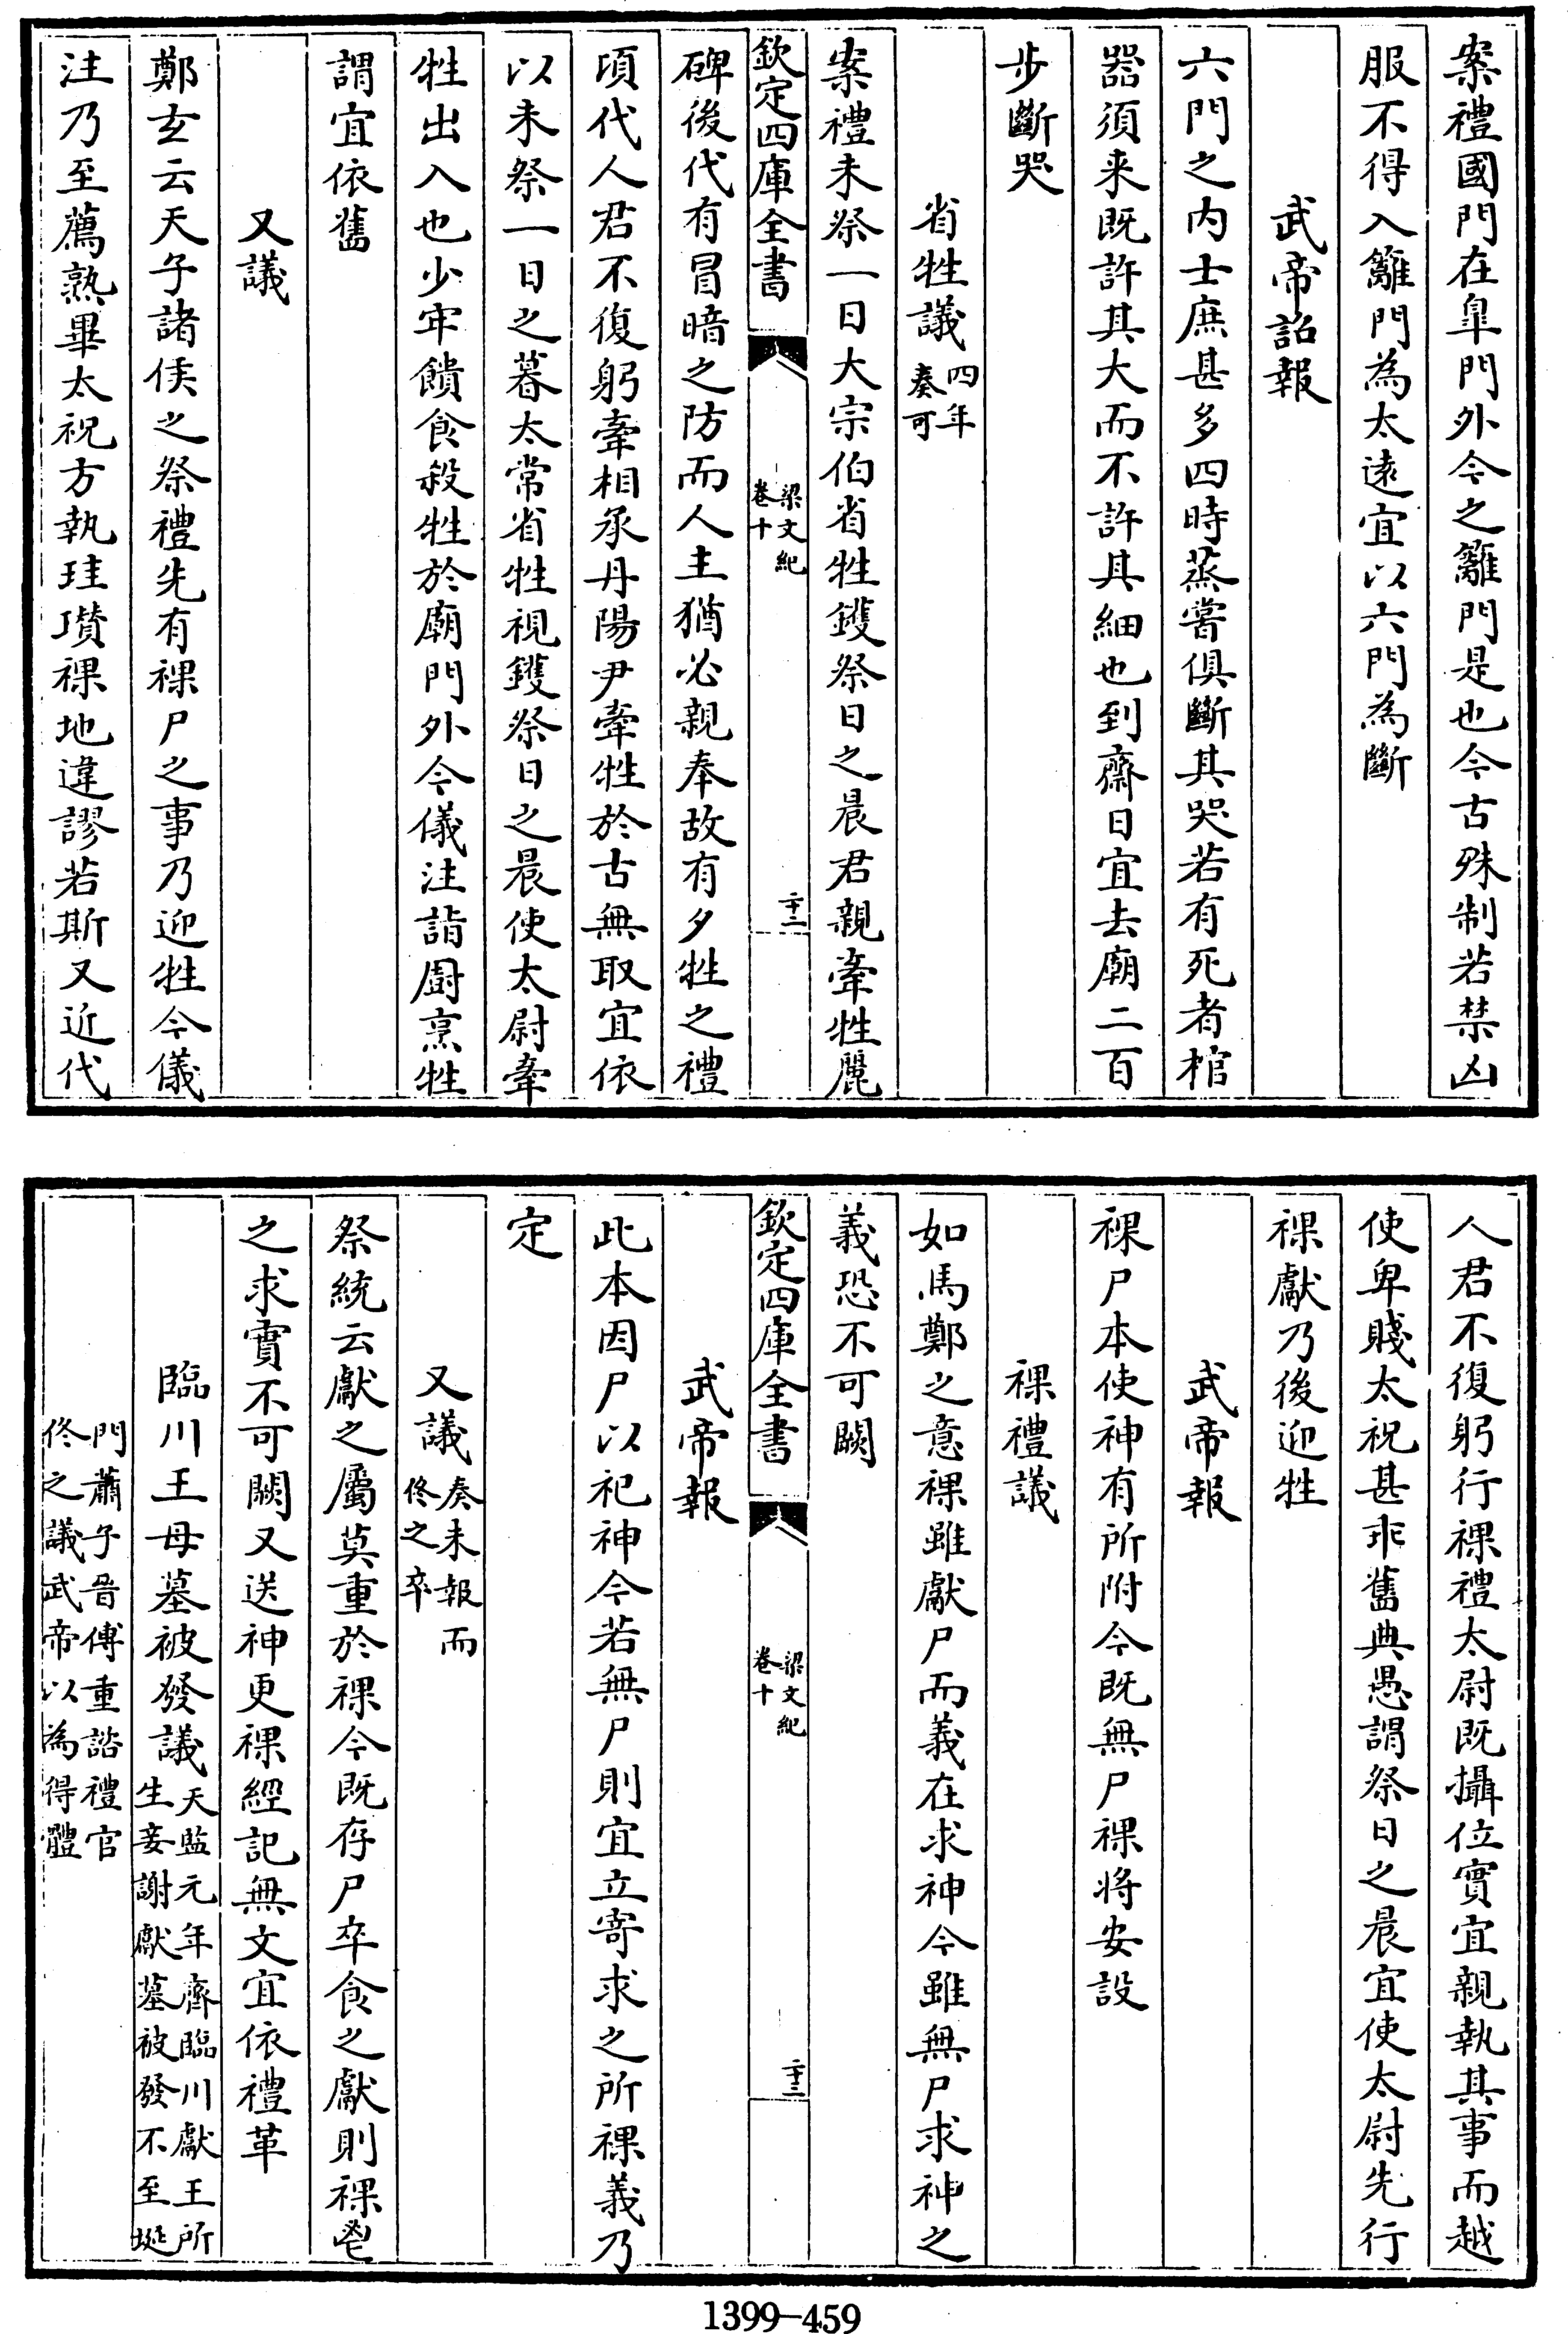 案禮國門在臯門外今之籬門是也今古殊制若禁凶
服不得入籬門為太遠宜以六門為斷
武帝詔報
六門之内士庶甚多四時蒸嘗俱斷其哭若有死者棺
器須来既許其大而不許其細也到齋日宜去廟二百
步斷哭
省牲議四年奏可
案禮未祭一日大宗伯省牲鑊祭日之晨君親牽牲麗
欽定四庫全書
梁文紀
卷十
二十二
碑後代有冒暗之防而人主猶必親奉故有夕牲之禮
頃代人君不復躬牽相承丹陽尹牽牲於古無取宜依
以未祭一日之暮太常省牲視鑊祭日之晨使太尉牽
牲出入也少牢饋食殺牲於廟門外今儀注詣厨烹牲
謂宜依舊
又議
鄭玄云天子諸侯之祭禮先有祼尸之事乃迎牲今儀
注乃至薦熟畢太祝方執珪瓚祼地違謬若斯又近代
人君不復躬行祼禮太尉既攝位實宜親執其事而越
使卑賤太祝甚乖舊典愚謂祭日之晨宜使太尉先行
祼獻乃後迎牲
武帝報
祼尸本使神有所附今既無尸祼將安設
祼禮議
如馬鄭之意祼雖獻尸而義在求神今雖無尸求神之
義恐不可闕
欽定四庫全書
梁文紀
卷十
二十三
武帝報
此本因尸以祀神今若無尸則宜立寄求之所祼義乃
定
又議奏未報而佟之卒
祭統云獻之屬莫重於祼今既存尸卒食之獻則祼鬯
之求實不可闕又送神更祼經記無文宜依禮革
臨川王母墓被發議天監元年齊臨川獻王所生妾謝獻墓被發不至埏
門蕭子晉傅重諮禮官佟之議武帝以為得體
1399-459